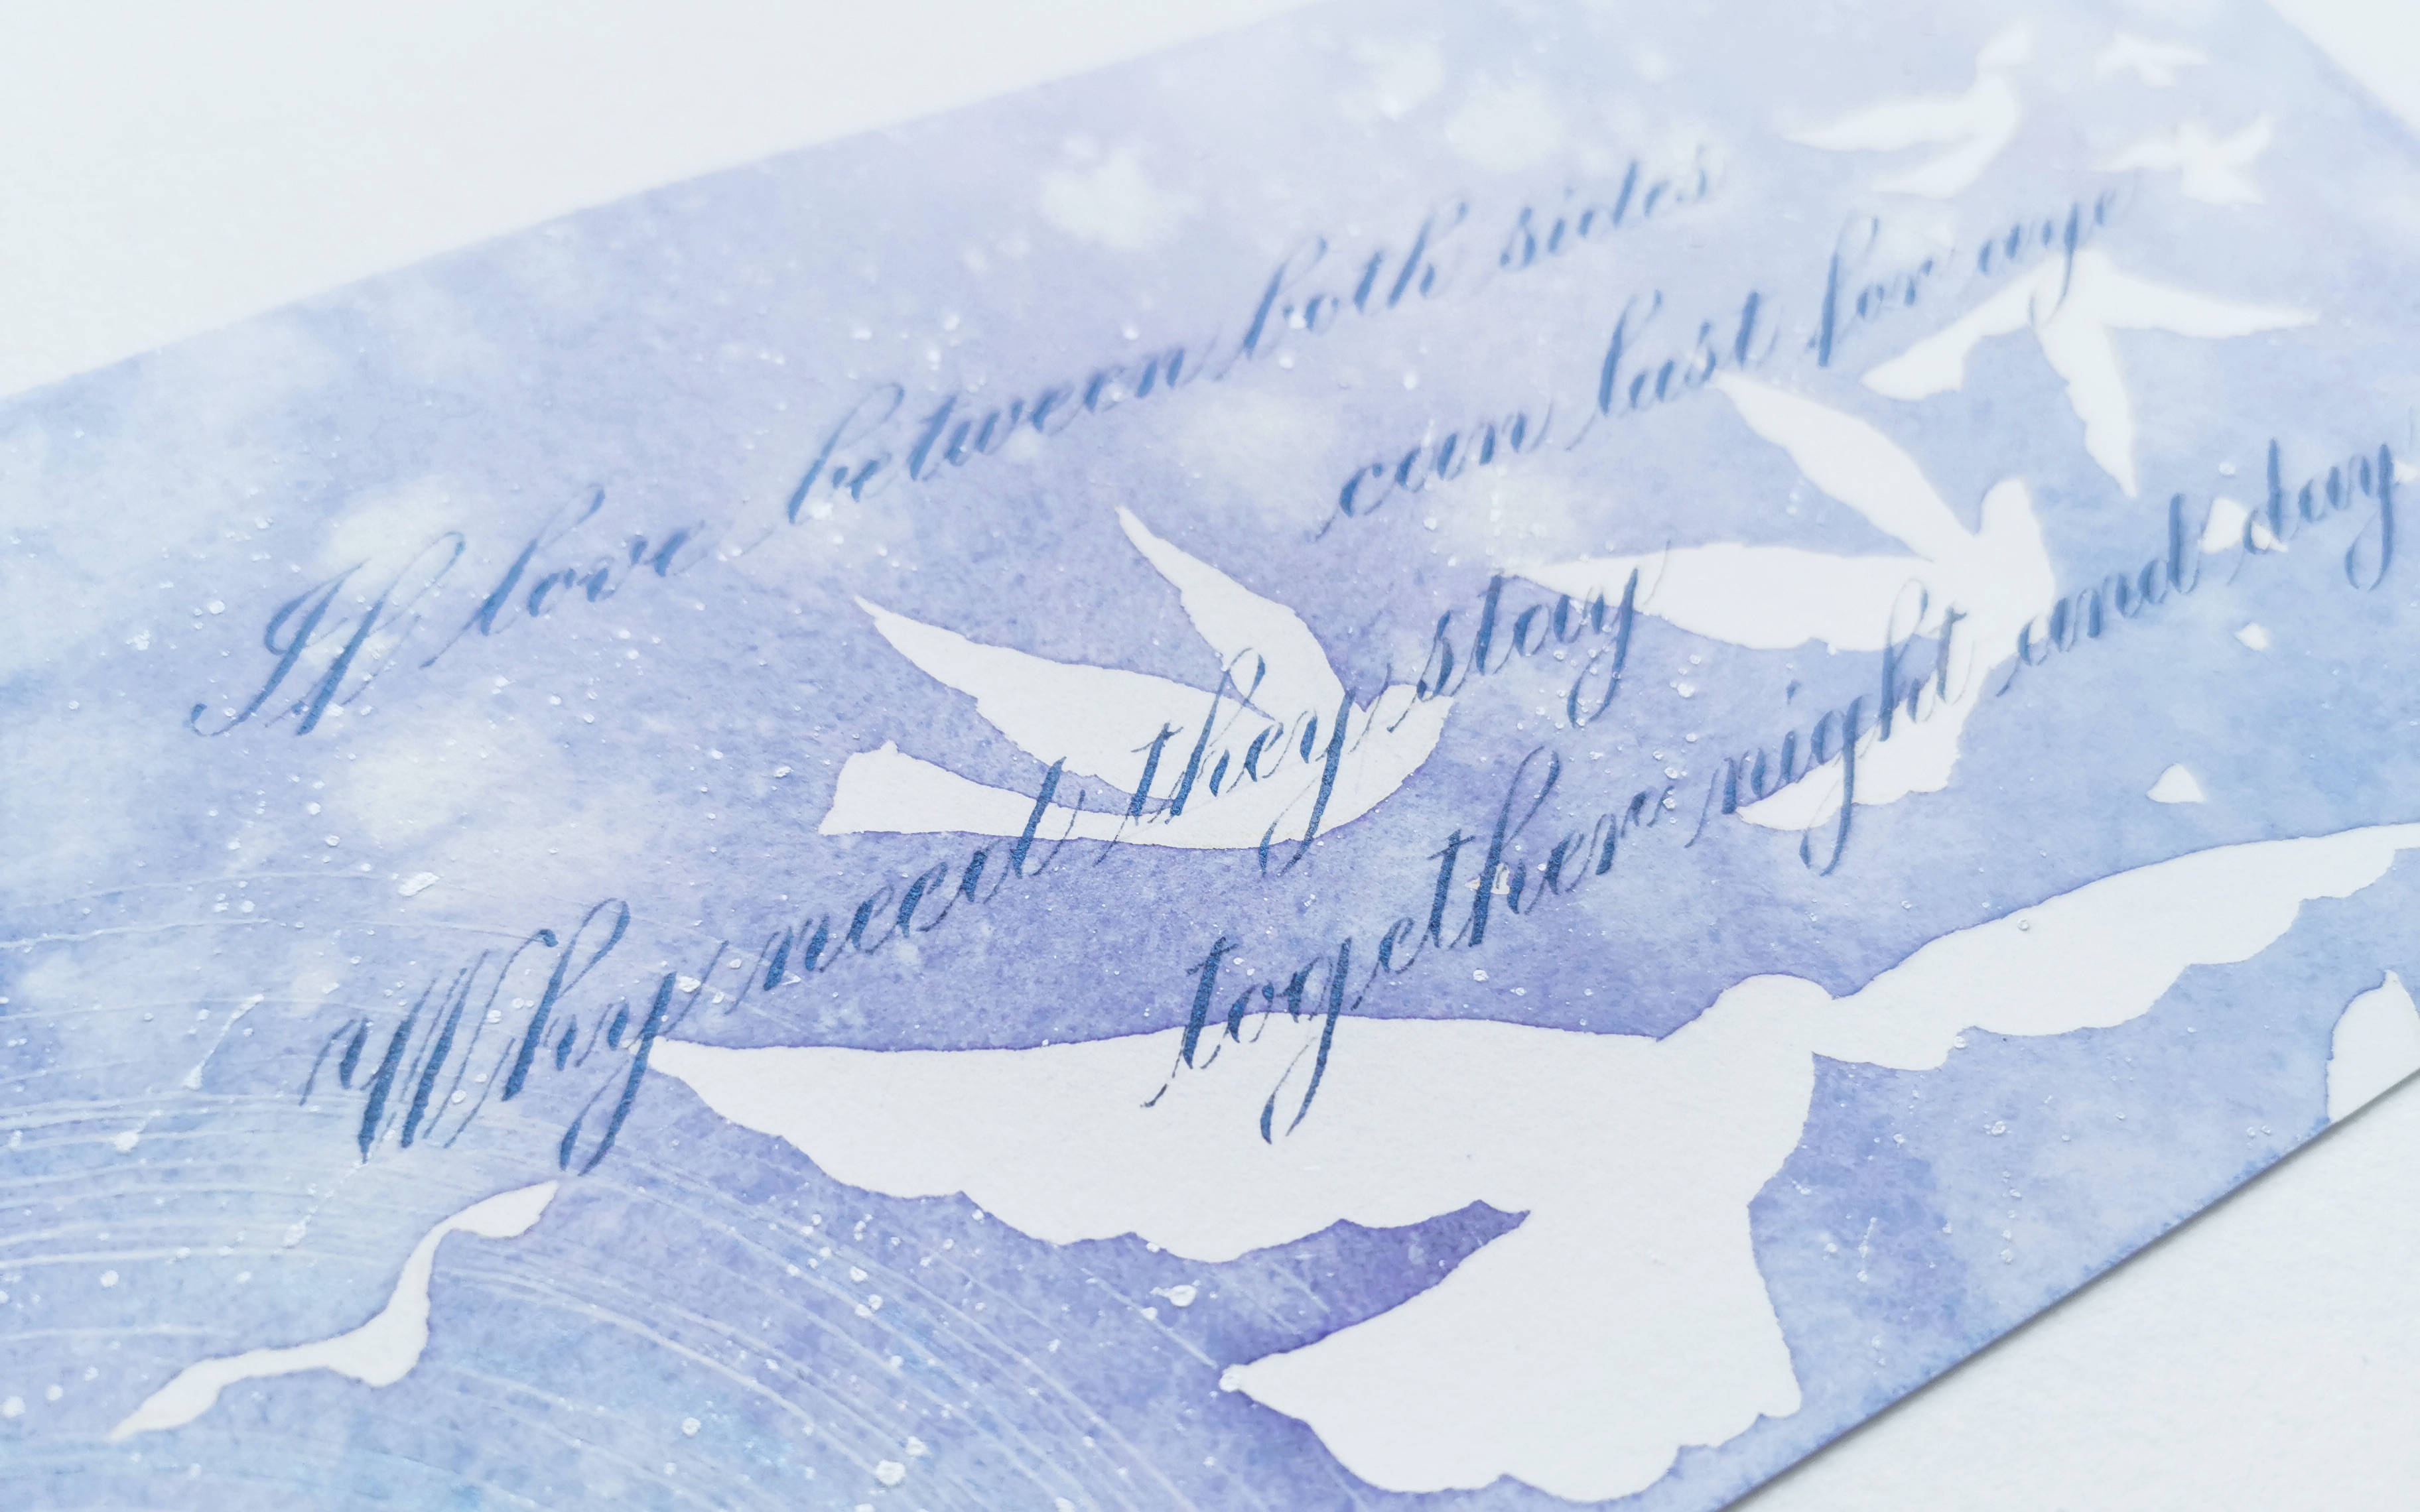 If love between both sides
can last for aye
Why need they stay
together night and day